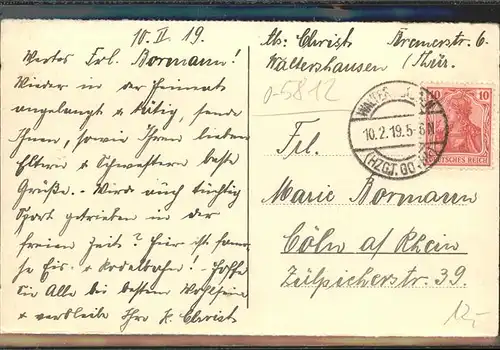 10. II. 19.
Wertes Frl. Bormann!
Wieder in der Heimat
angelangt & tätig, sende
Ihnen, sowie Ihren lieben
Eltern & Schwestern beste
Grüße. - Wird auch tüchtig
Sport getrieben in der
freien Zeit? Hier ist famo-
se Eis- & Rodelbahn! - Hoffe
Sie Alle bei bestem Wohlsein
& verbleibe Ihre K. Christ
Abs: Christ Bremerstr. 6.
Waltershausen /Thür.
0-5812
10.2.19.5-6N
(HZGT.GOTHA)
10 10
DEUTSCHES REICH
Frl.
Marie Bormann
Cöln a/Rhein
Zülpicherstr. 39.
12,-